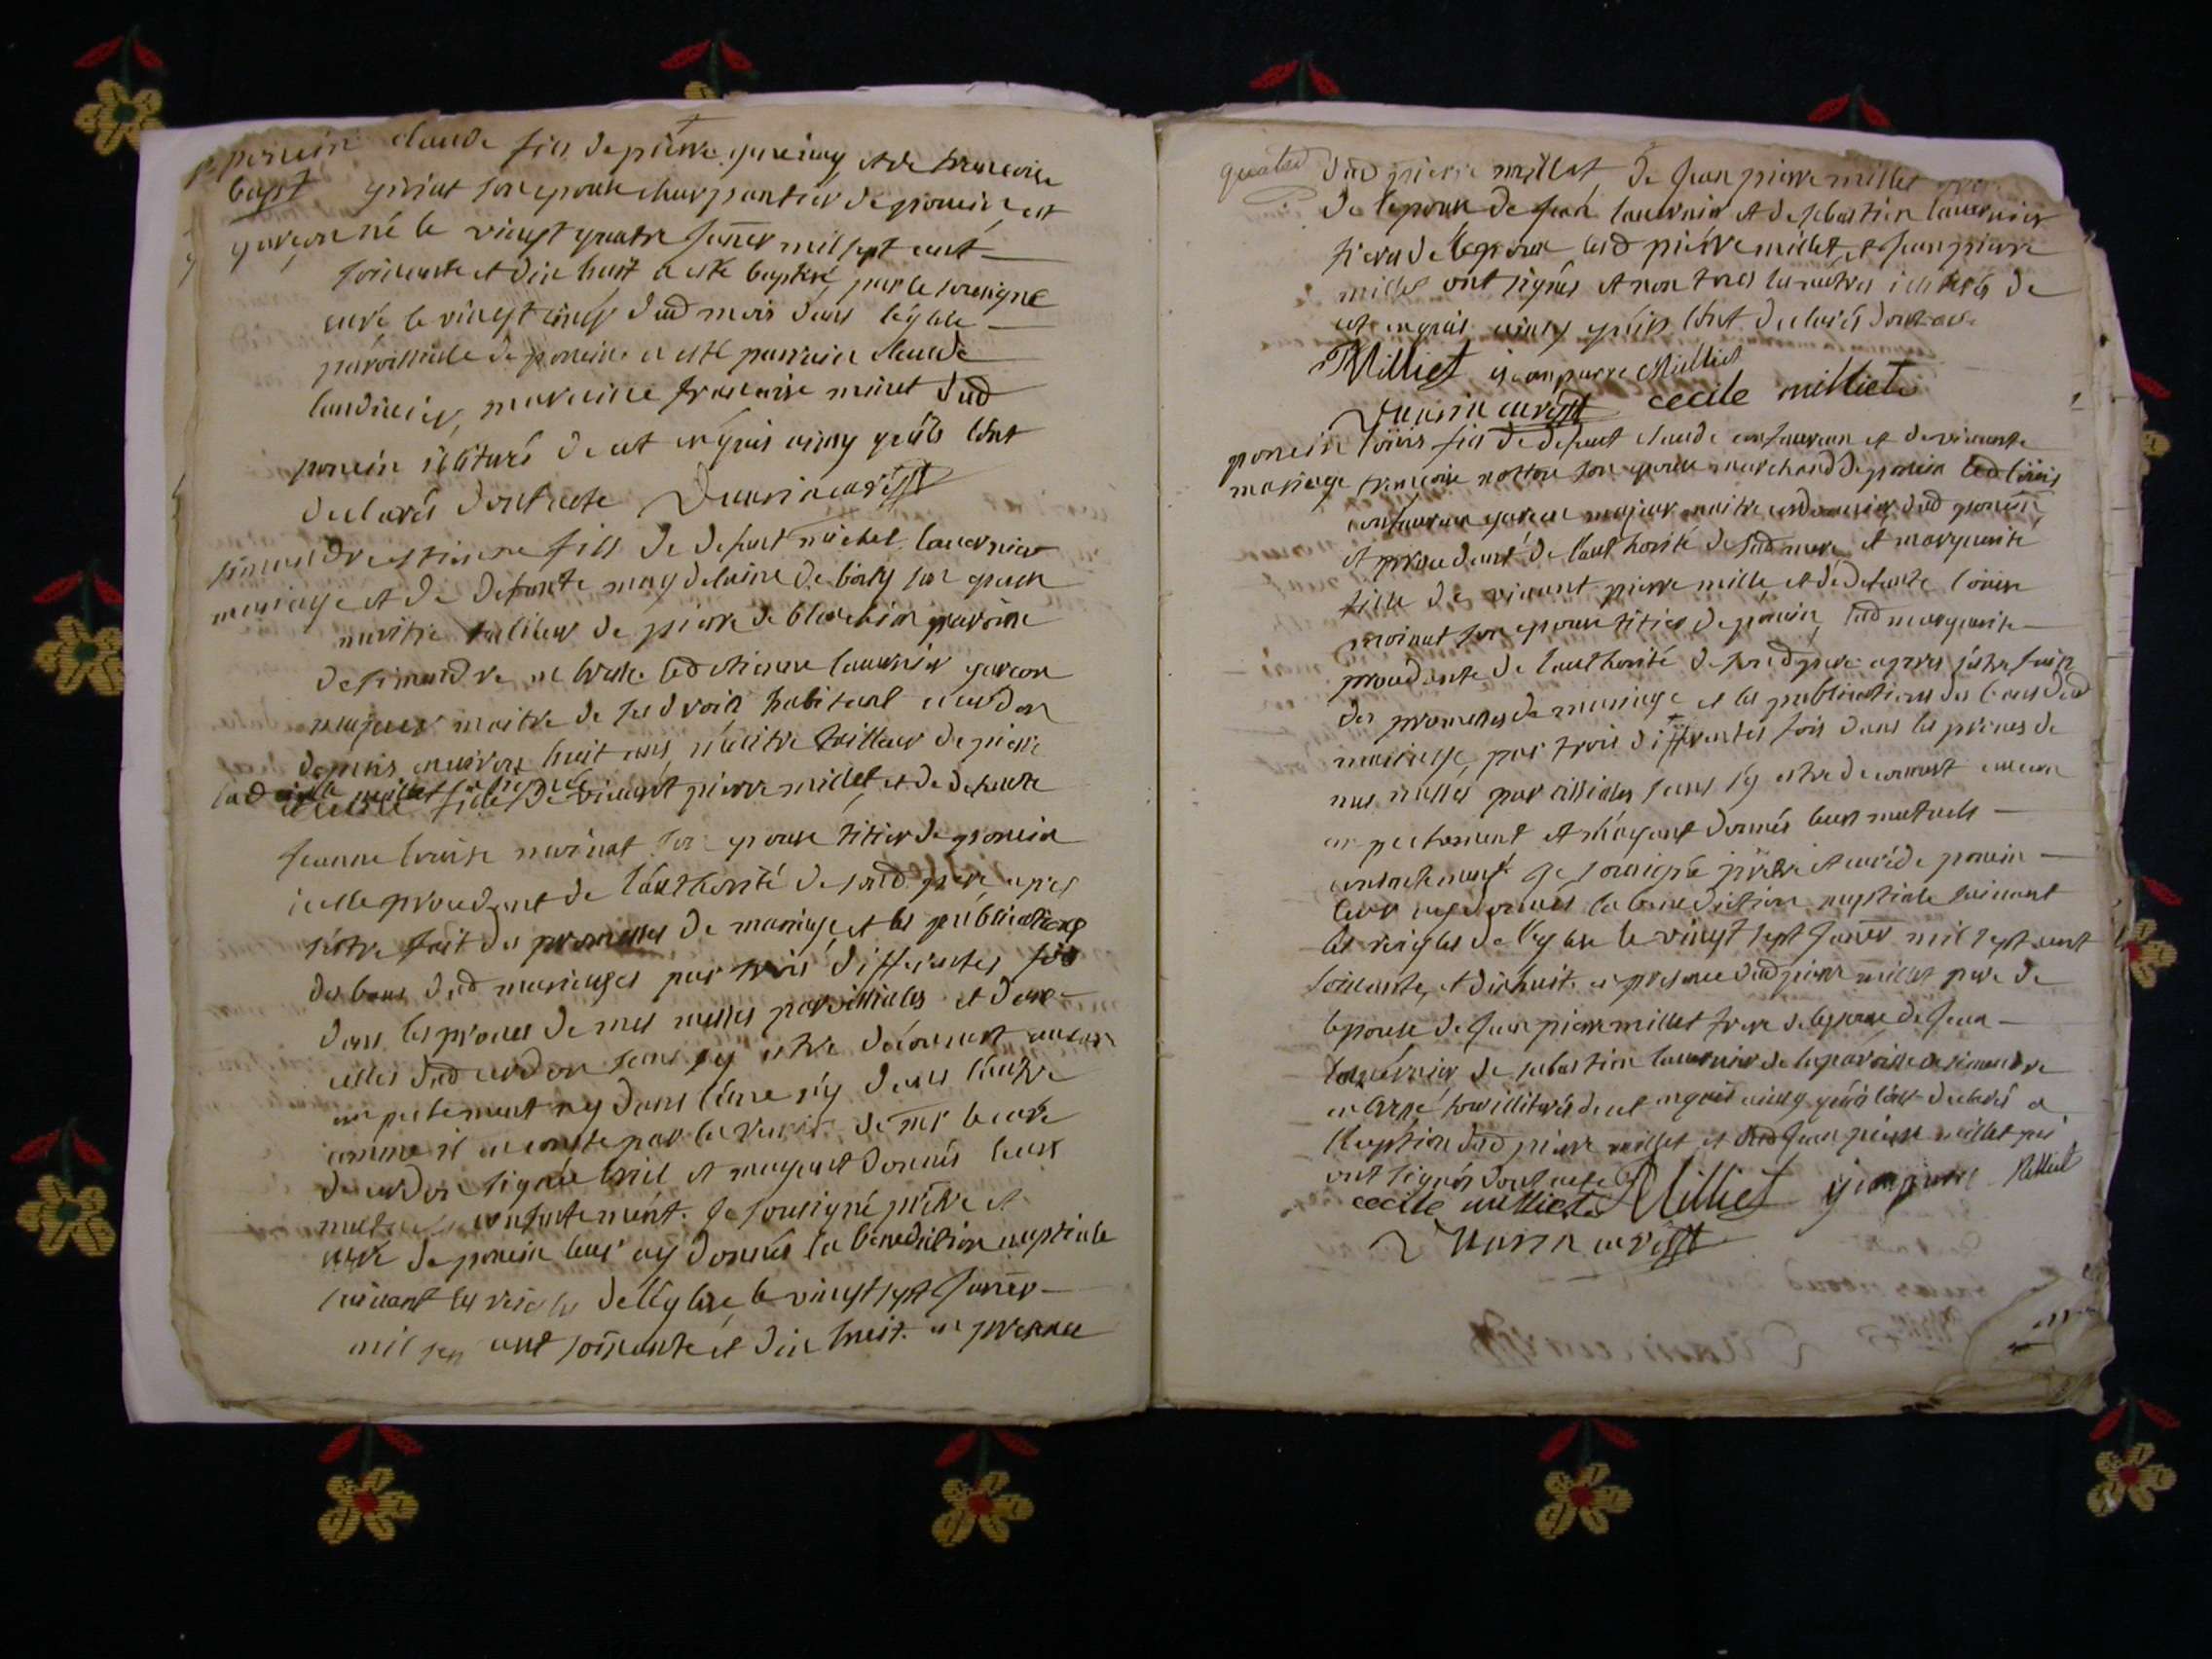 poncin claude fils de pierre et de francoise
bapt son epouse charpantier de poncin est
garcon né le vingt quatre janer mil sept cent
soixante et dix huit a esté baptisé par le sousigné
curé le vingt cinq dud mois dans léglise
parroissiale de poncin a esté parrain claude
maraine francoise minet dud
poncin illiturés de cet enquis ainsy quils lont
declarés dont acte curé
simandre estienne fils de defunt michel lauernier
mariage et de defunte magdelaine de son epouse
maitre tailleur de pierre de paroisse
de simandre en led etienne lauernier garcon
majeur maitre de ses droits habitant a cerdon
depuis environ huit ans maitre tailleur de pierre
lad cecile fille de vivant pierre millet et de defunte
jeanne louise moinat son epouse titier de poncin
icelle procedant de lauthorité de sond pere apres
sestre fait des promesses de mariage et les publications
des bans dud mariages par trois differentes fois
dans les prones de mes messes parroissiales et dans
celles dud cerdon sans sy estre decouvert aucun
empechement ny dans lune ny dans lautre
comme il en conste par la remise de mr le curé
de cerdon signée et mayant donnés leurs
mutuels consentement. Je sousigné prêtre et
curé de poncin leur ay donnés la bénédiction nuptiale
suivant les reigles de leglise le vingt sept janer
mil sept cent soixante et dix huit. en presence
dud pierre millet de jean pierre millet
de lepouse de jean lauernier et de sebastien lauernier
freres de lepoux lesd pierre millet et jean pierre
millet ont signés et non tous les autres illiturés de
cet enquis ainsy quils lont declarés dont acte
Milliet jeanpierre Milliet
curé cecile milliet
poncin louis fils de defunt claude et de vivante
mariage francoise son epouse marchand de poncin led louis
garcon majeur maitre cordonnier dud poncin
et procedant de lauthorité de sad mere et marguerite
fille de vivant pierre millet et de defunte louise
moinat son epouse titier de poncin lad marguerite
procedante de lauthorité de sond pere apres sestre fait
des promesses de mariage et les publications des bans dud
mariage par trois differentes fois dans les prones de
mes messes parroissiales sans sy estre decouvert aucun
empechement et mayant donnés leurs mutuels
consentement. Je sousigné prêtre et curé de poncin
leur ay donnés la benediction nuptiale suivant
les reigles de leglise le vingt sept janer mil sept cent
soixante et dix huit. en presence dud pierre millet pere de
lepouse de jean pierre millet frere de lepouse de jean
lauernier de sebastien lauernier de la paroisse de simandre
en tous illiturés de cet enquis ainsy quils lont declarés a
lexeption dud pierre millet et dud jean pierre millet qui
ont signés dont acte
cecile milliet Milliet jeanpierre Milliet
curé